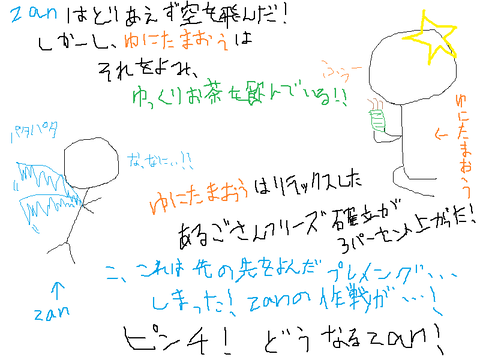 zanはとりあえず空を飛んだ!
しかーし、ゆにたまおうは
それをよみ、
ゆっくりお茶を飲んでいる!!
ふぅー
ゆにたまおう
パタパタ
な、なにぃ!!
zan
ゆにたまおうはリラックスした
あるごさんフリーズ確立が
3パーセント上がった!
こ、これは先の先をよんだプレイング...
しまった!zanの作戦が...!
ピンチ! どうなるzan!